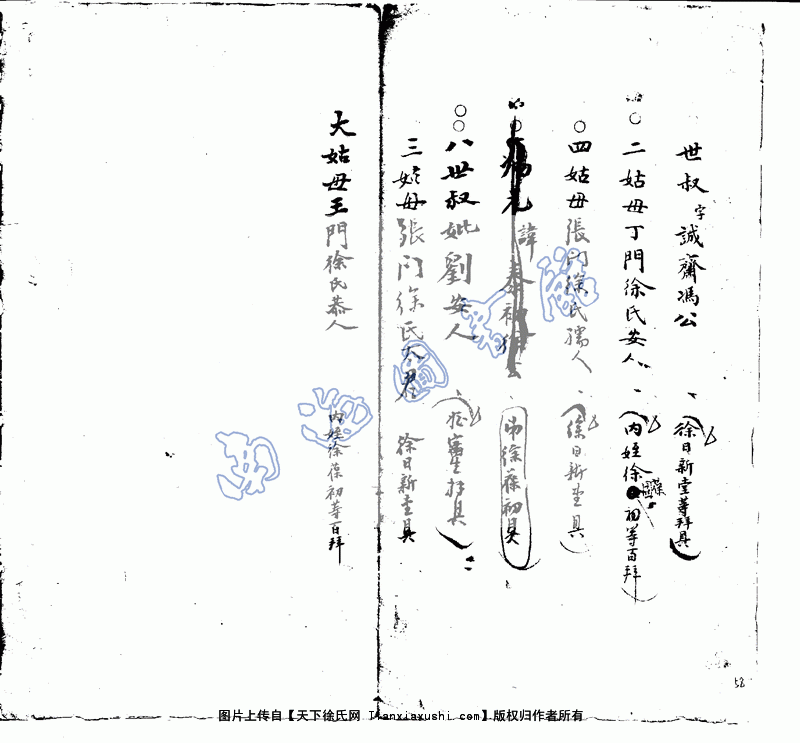 世叔字誠齋馮公
徐日新堂等拜具
二姑母丁門徐氏安人
內姪徐葆初等百拜
四姑母張門徐氏孺人
徐日新堂具
諱泰初
徐葆初具
八世叔妣劉安人
三姑母張門徐氏太君
徐日新堂具
大姑母王門徐氏恭人
內姪徐葆初等百拜
58
图片上传自【天下徐氏网 Tianxiaxushi.com】版权归作者所有